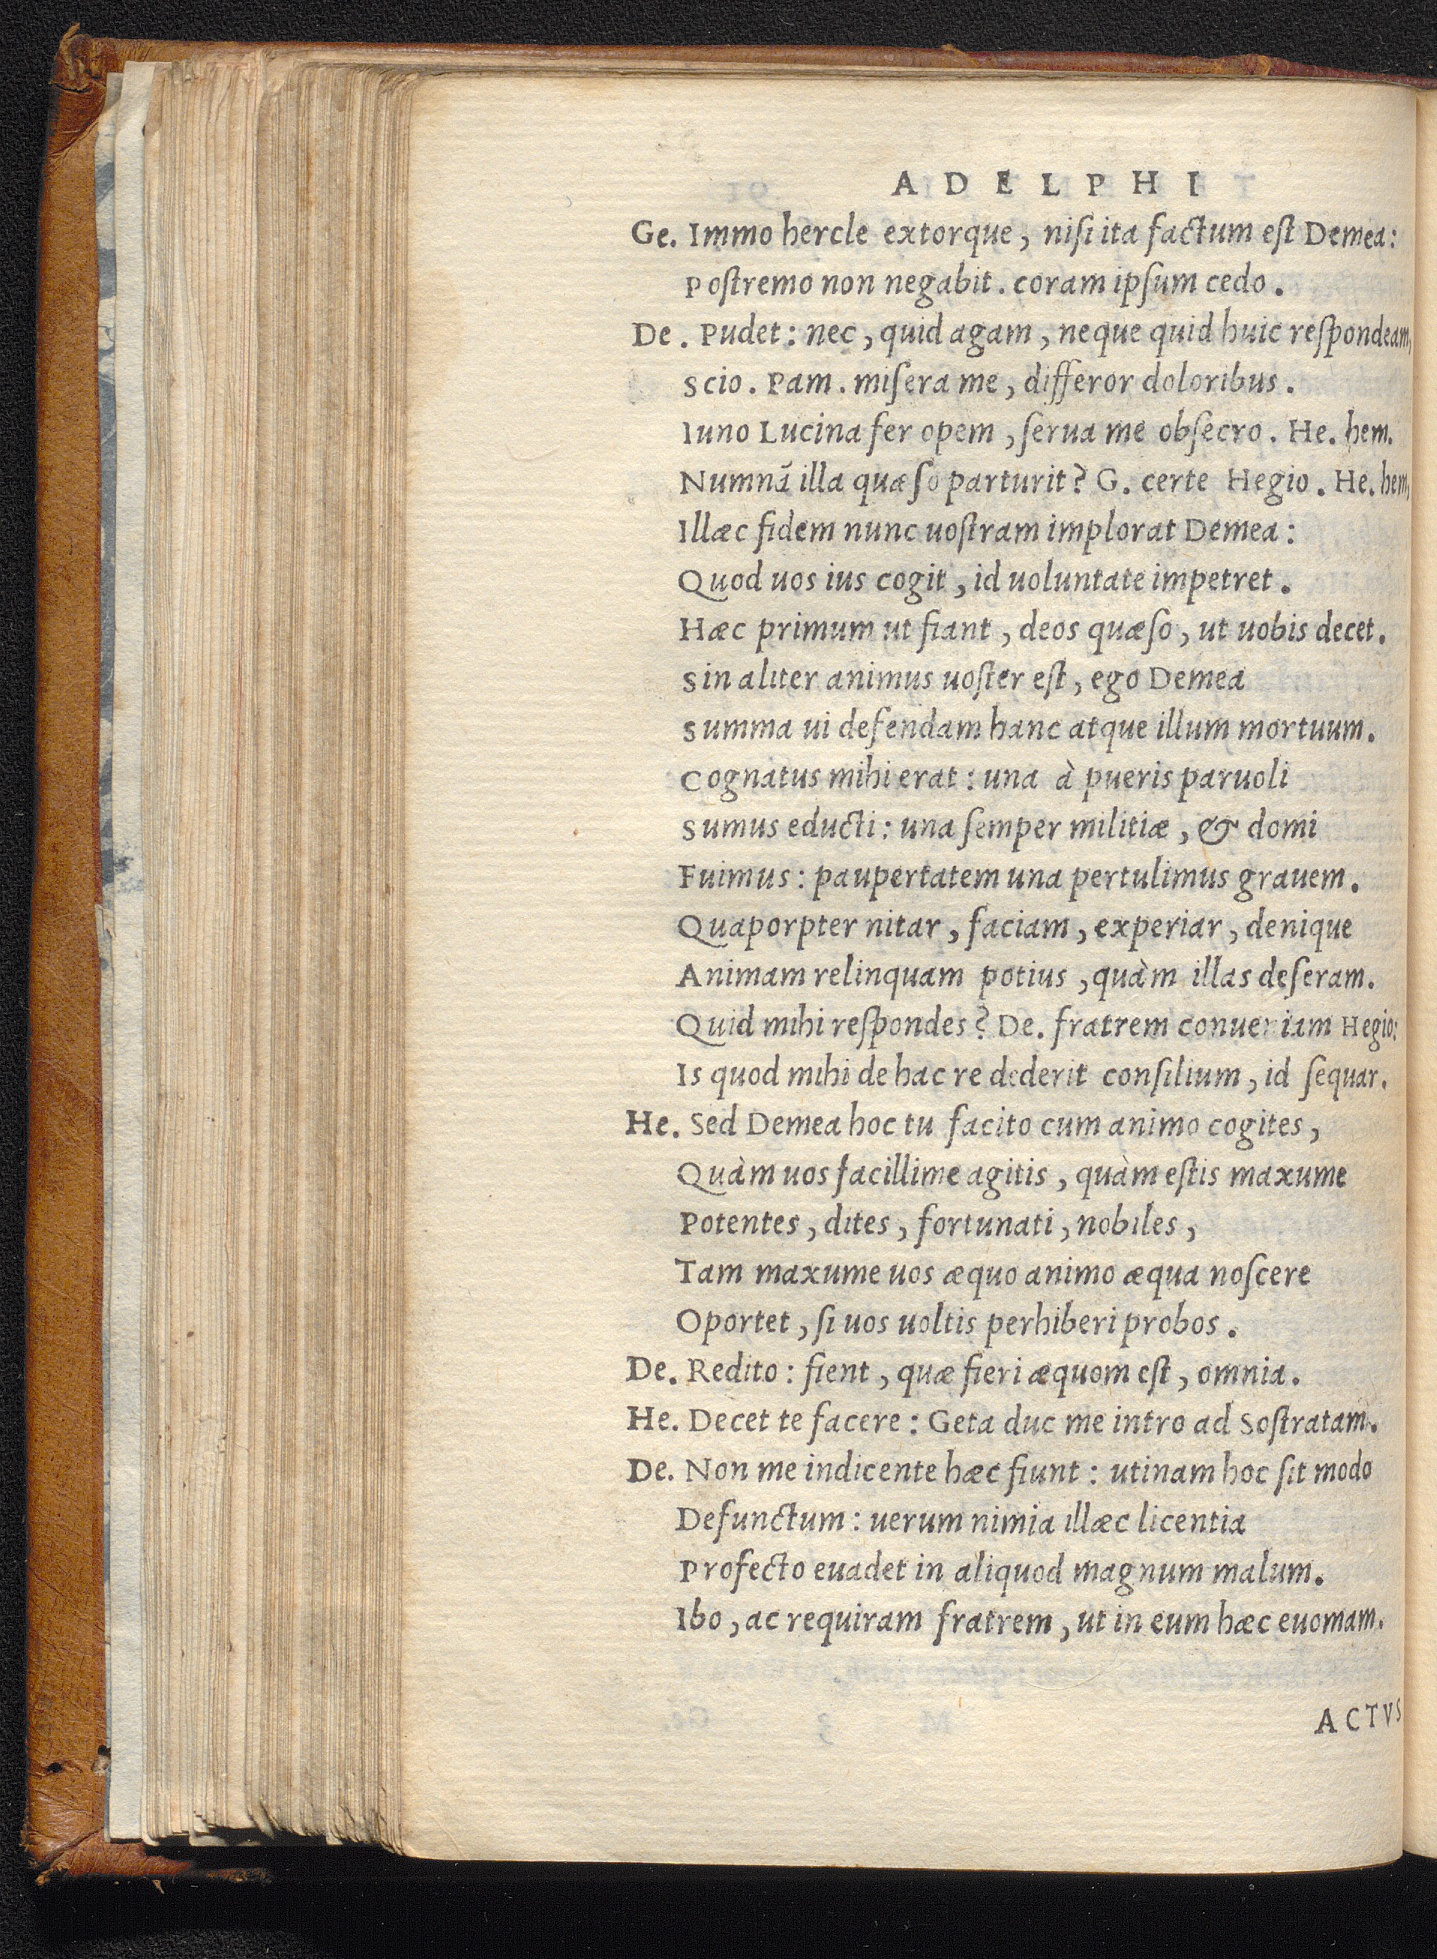 ADELPHI
Ge. Immo hercle extorque, niſi ita factum eſt Demea:
Poſtremo non negabit. coram ipſum cedo.
De. Pudet: nec, quid agam, neque quid huic reſpondeam,
Scio. Pam. miſera me, differor doloribus.
Iuno Lucina fer opem, ſerua me obſecro. He. hem.
Numnã illa quæſo parturit? G. certe Hegio. He. hem,
Illæc fidem nunc uoſtram implorat Demea:
Quod uos ius cogit, id uoluntate impetret.
Hæc primum ut fiant, deos quæſo, ut uobis decet.
Sin aliter animus uoſter eſt, ego Demea
Summa ui defendam hanc atque illum mortuum.
Cognatus mihi erat: una à pueris paruoli
Sumus educti: una ſemper militiæ, & domi
Fuimus: paupertatem una pertulimus grauem.
Quaporpter nitar, faciam, experiar, denique
Animam relinquam potius, quàm illas deſeram.
Quid mihi reſpondes? De. fratrem conueniam Hegio:
Is quod mihi de hac re dederit conſilium, id ſequar.
He. Sed Demea hoc tu facito cum animo cogites,
Quàm uos facillime agitis, quàm eſtis maxume
Potentes, dites, fortunati, nobiles,
Tam maxume uos æquo animo æqua noſcere
Oportet, ſi uos uoltis perhiberi probos.
De. Redito: fient, quæ fieri æquom eſt, omnia.
He. Decet te facere: Geta duc me intro ad Soſtratam.
De. Non me indicente hæc fiunt: utinam hoc ſit modo
Defunctum: uerum nimia illæc licentia
Profecto euadet in aliquod magnum malum.
Ibo, ac requiram fratrem, ut in eum hæc euomam.
ACTVS